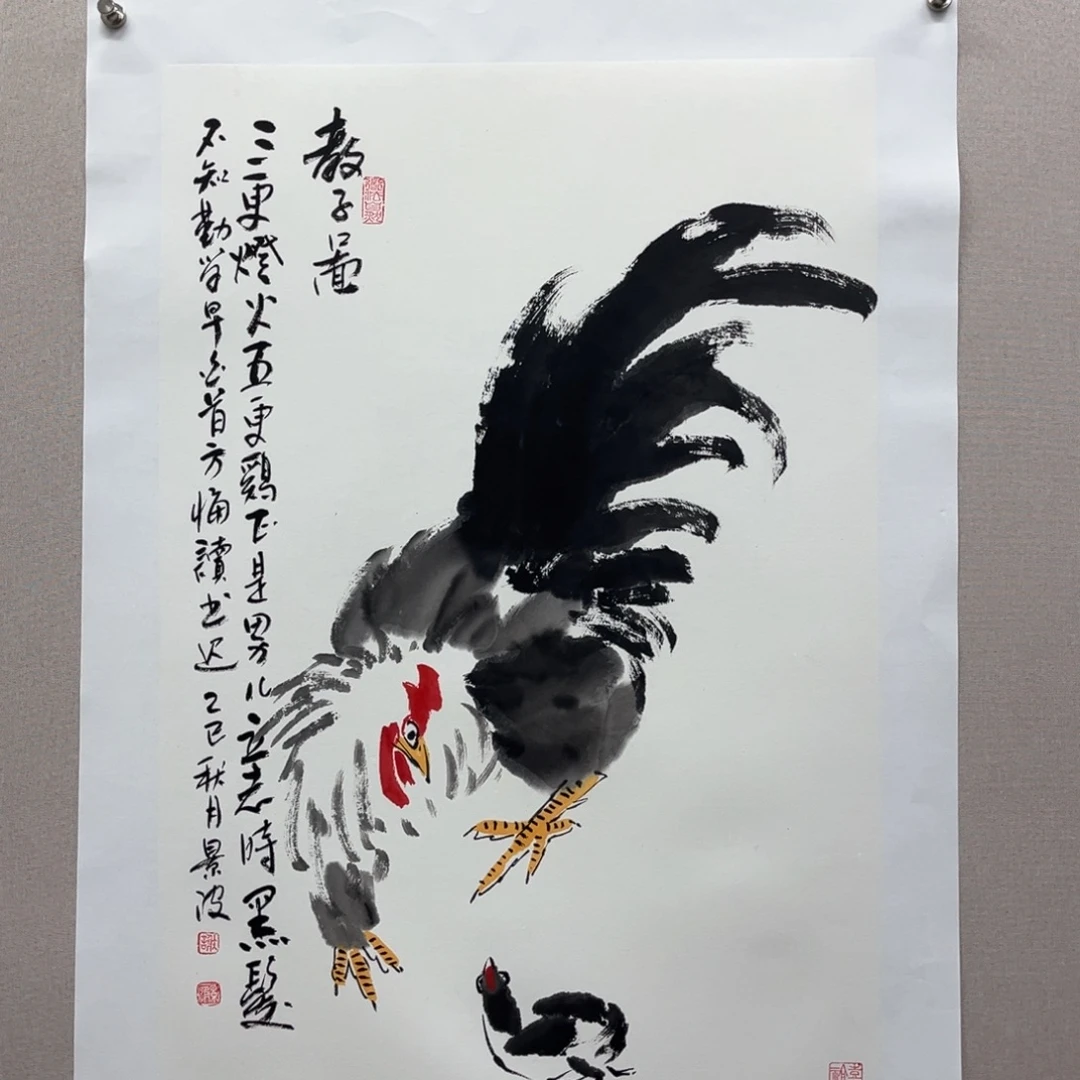 教子圖
三更燈火五更鷄正是男儿立志時黑髮
不知勤学早白首方悔讀书迟乙巳秋月景波